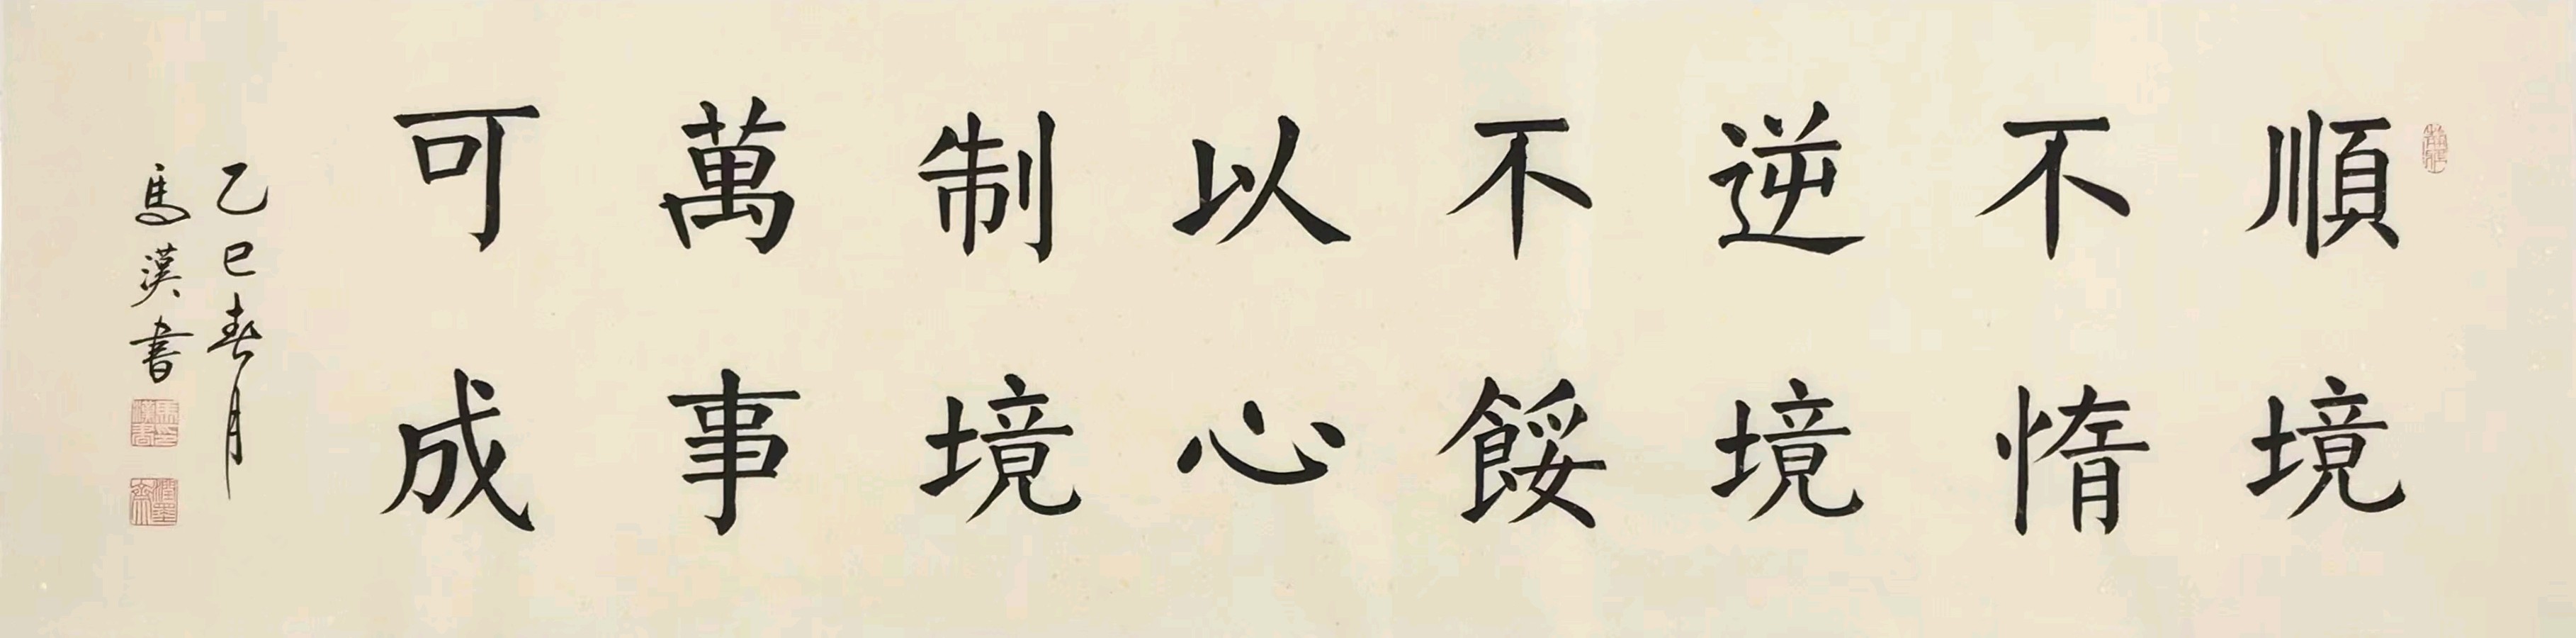 順境
不惰
逆境
不餒
以心
制境
萬事
可成
乙巳春月
馬漢書